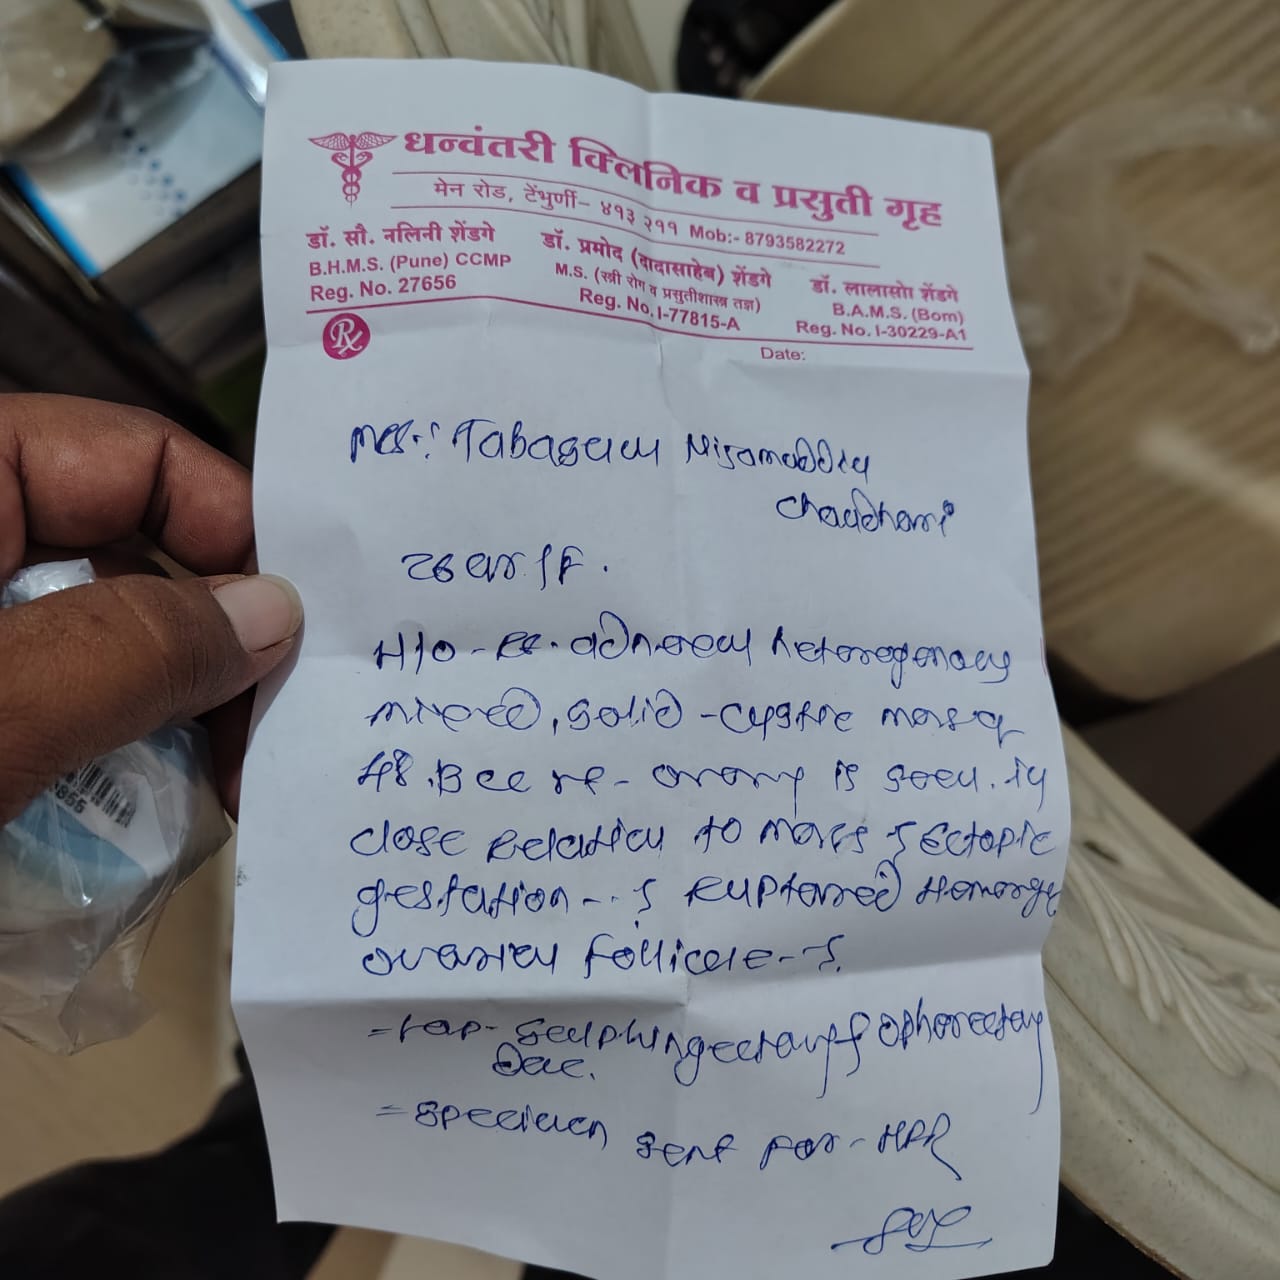 धन्वंतरी क्लिनिक व प्रसुती गृह
मेन रोड, टेंभुर्णी- ४१३ २११ Mob:- 8793582272
डॉ. सौ. नलिनी शेंडगे
B.H.M.S. (Pune) CCMP
Reg. No. 27656
डॉ. प्रमोद (दादासाहेब) शेंडगे
M.S. (स्त्री रोग व प्रसुतीशास्त्र तज्ञ)
Reg. No. I-77815-A
डॉ. लालासो शेंडगे
B.A.M.S. (Bom)
Reg. No. I-30229-A1
Rx
Date:
Tabasum Nizamoddin
Chaudhari
26 /F.
H/O - adnexal heterogenous
mixed, solid - cystic mass of
48. ovary is seen. in
close relation to mass ? Ectopic
gestation - - ? Ruptured
ovarian follicle - ?
= Lap-
= Specimen sent for - HPR